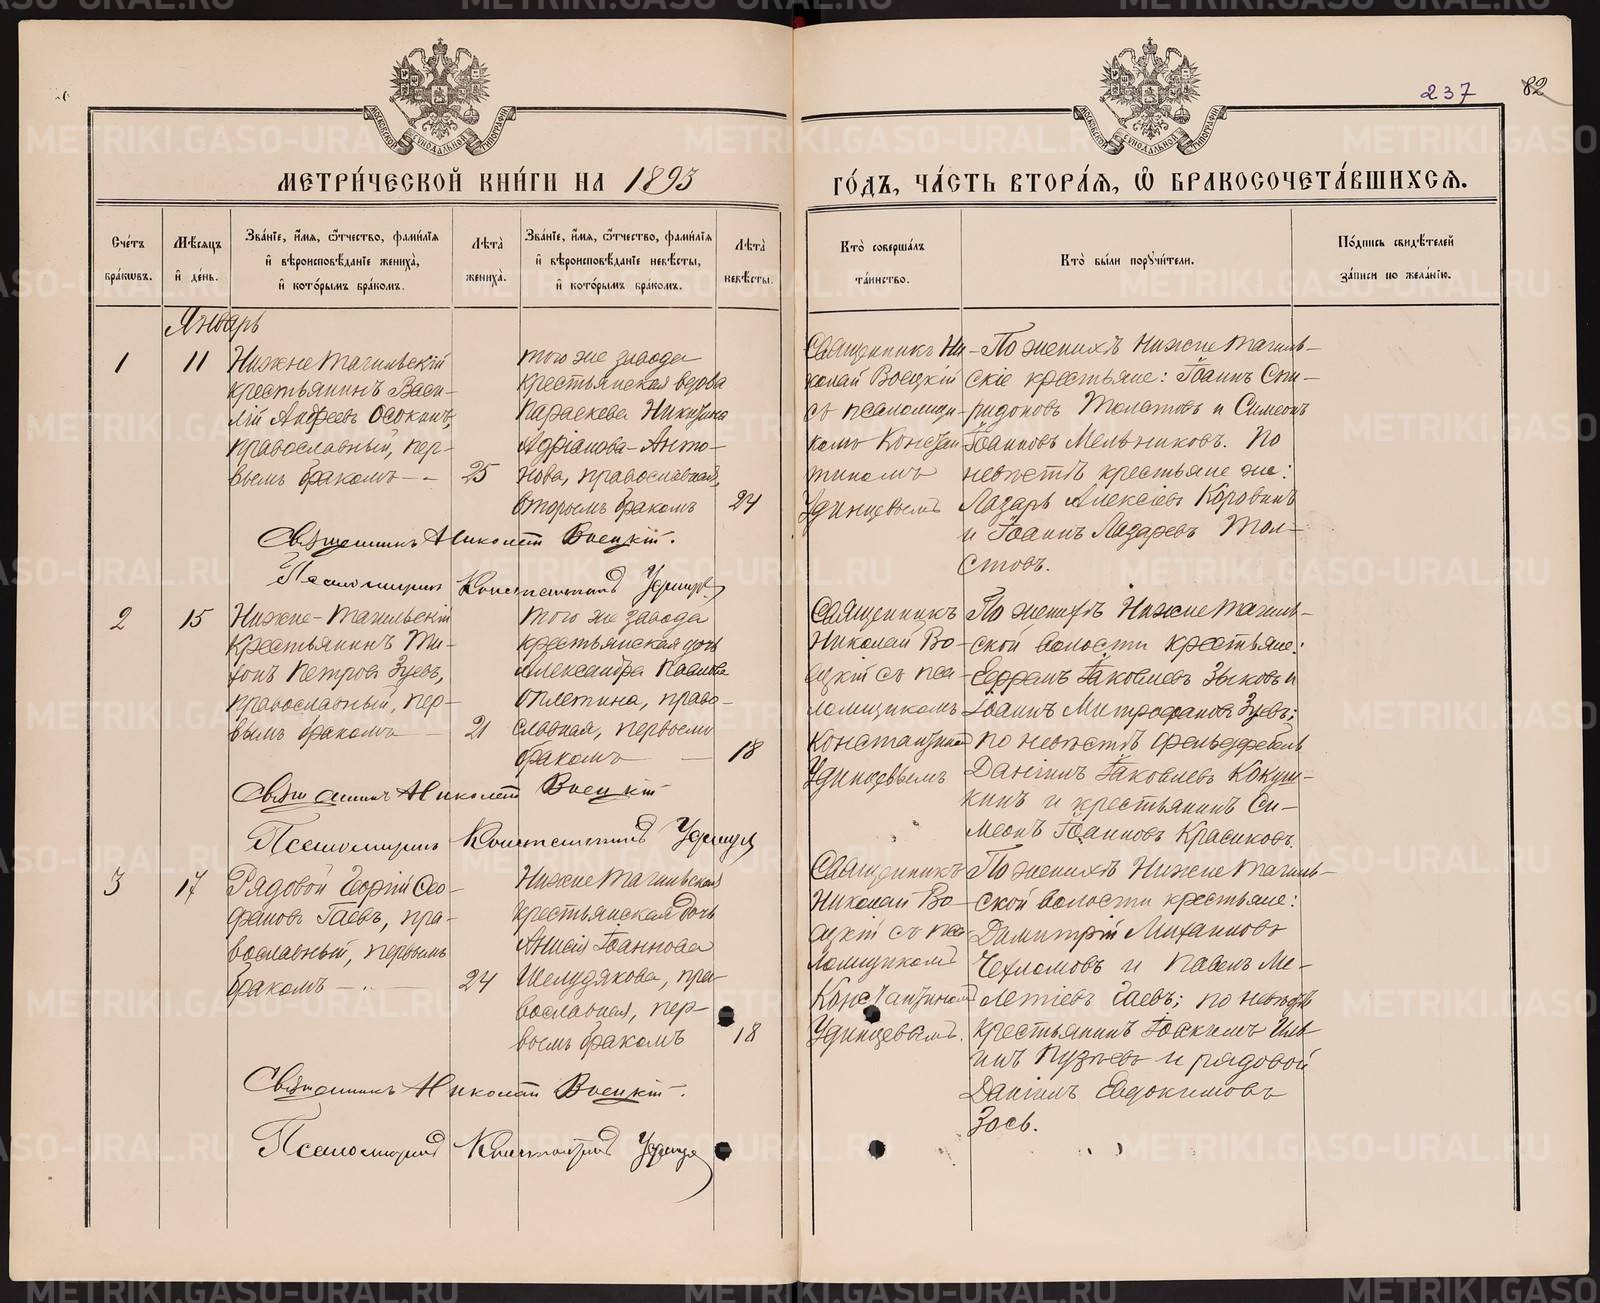 237
82
МОСКОВСКОЙ СѴНОДАЛЬНОЙ ТИПОГРАФІИ
МОСКОВСКОЙ СѴНОДАЛЬНОЙ ТИПОГРАФІИ
МЕТРИ́ЧЕСКОЙ КНИ́ГИ НА 1893
ГО́ДЪ, ЧА́СТЬ ВТОРА́Я, Ѿ БРАКОСОЧЕТА́ВШИХСЯ.
Сче́тъ
бра́ковъ.
Мѣ́сяцъ
и҆ де́нь.
Зва́нїе, и҆́мя, ѻ҆́тчество, фами́лїя
и҆ вѣроисповѣ́данїе жениха̀,
и҆ кото́рымъ бра́комъ.
Лѣ́та̀
жениха̀.
Зва́нїе, и҆́мя, ѻ҆́тчество, фами́лїя
и҆ вѣроисповѣ́данїе невѣ́сты,
и҆ кото́рымъ бра́комъ.
Лѣ́та̀
невѣ́сты.
Кто̀ соверша́лъ
та́инство.
Кто̀ бы́ли пору́чители.
По́дпись свидѣ́телей
за́писи по жела́нїю.
Январь
1
11
Нижне Тагильскій
крестьянинъ Васи-
лій Андреевъ Осокинъ,
православный, пер-
вымъ бракомъ
25
того же завода
крестьянская вдова
Параскева Никитина
Адріанова-Анто-
нова, православная,
вторымъ бракомъ
24
Священникъ Ни-
колай Воецкій
съ псаломщи-
комъ Констан
тиномъ
Удинцевымъ
По женихѣ Нижне Тагиль-
скіе крестьяне: Іоаннъ Спи-
ридоновъ Толстовъ и Симеонъ
Іоанновъ Мельниковъ. По
невѣстѣ крестьяне же:
Лазарь Алексіевъ Коровинъ
и Іоаннъ Лазаревъ Тол-
стовъ.
Священникъ Николай Воецкій.
Псаломщикъ Константинъ Удинцевъ
2
15
Нижне-Тагильскій
крестьянинъ Ти-
хонъ Петровъ Зуевъ,
православный, пер-
вымъ бракомъ
21
того же завода
крестьянская дочь
Александра Павлова
Оплетина, право-
славная, первымъ
бракомъ
18
Священникъ
Николай Во-
ецкій съ пса-
ломщикомъ
Константиномъ
Удинцевымъ
По женихѣ Нижне Тагиль-
ской волости крестьяне:
Ефремъ Іаковлевъ Зыковъ и
Іоаннъ Митрофановъ Зуевъ;
по невѣстѣ фельдфебель
Даніилъ Іаковлевъ Кокуш-
кинъ и крестьянинъ Си-
меонъ Іоанновъ Красиковъ.
Священникъ Николай Воецкій
Псаломщикъ Константинъ Удинцевъ
3
17
Рядовой Георгій Ѳео-
фановъ Гаевъ, пра-
вославный, первымъ
бракомъ
24
Нижне Тагильская
крестьянская дочь
Анисія Іоаннова
Шелудякова, пра-
вославная, пер-
вымъ бракомъ
18
Священникъ
Николай Во-
ецкій съ пса
ломщикомъ
Константиномъ
Удинцевымъ.
По женихѣ Нижне Тагиль-
ской волости крестьяне:
Димитрій Михаиловъ
Чехломовъ и Павелъ Ме-
летіевъ Гаевъ; по невѣстѣ
крестьянинъ Іоакимъ Иль-
инъ Пузѣевъ и рядовой
Даніилъ Евдокимовъ
Зось.
Священникъ Николай Воецкій.
Псаломщикъ Константинъ Удинцевъ
METRIKI.GASO-URAL.RU